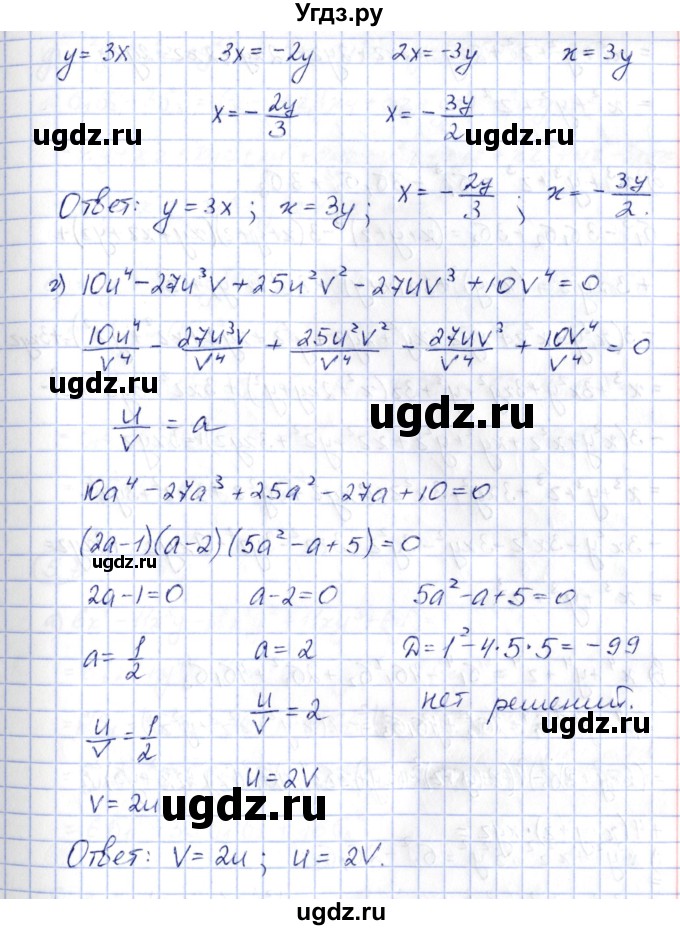 Угдз.ру
y = 3x 3x = -2y 2x = -3y x = 3y
x = -2y/3 x = -3y/2
ugdz.ru ugdz.ru
Ответ: y = 3x ; x = 3y ; x = -2y/3 ; x = -3y/2.
г) 10u⁴ - 27u³v + 25u²v² - 27uv³ + 10v⁴ = 0
10u⁴/v⁴ - 27u³v/v⁴ + 25u²v²/v⁴ - 27uv³/v⁴ + 10v⁴/v⁴ = 0
ugdz.ru ugdz.ru
u/v = a
10a⁴ - 27a³ + 25a² - 27a + 10 = 0
(2a-1)(a-2)(5a² - a + 5) = 0
ugdz.ru ugdz.ru
2a-1=0 a-2=0 5a² - a + 5 = 0
a = 1/2 a = 2 D = 1² - 4·5·5 = -99
u/v = 1/2 u/v = 2 нет решений.
ugdz.ru
v = 2u u = 2v
ugdz.ru
Ответ: v = 2u ; u = 2v.
ugdz.ru
ugdz.ru